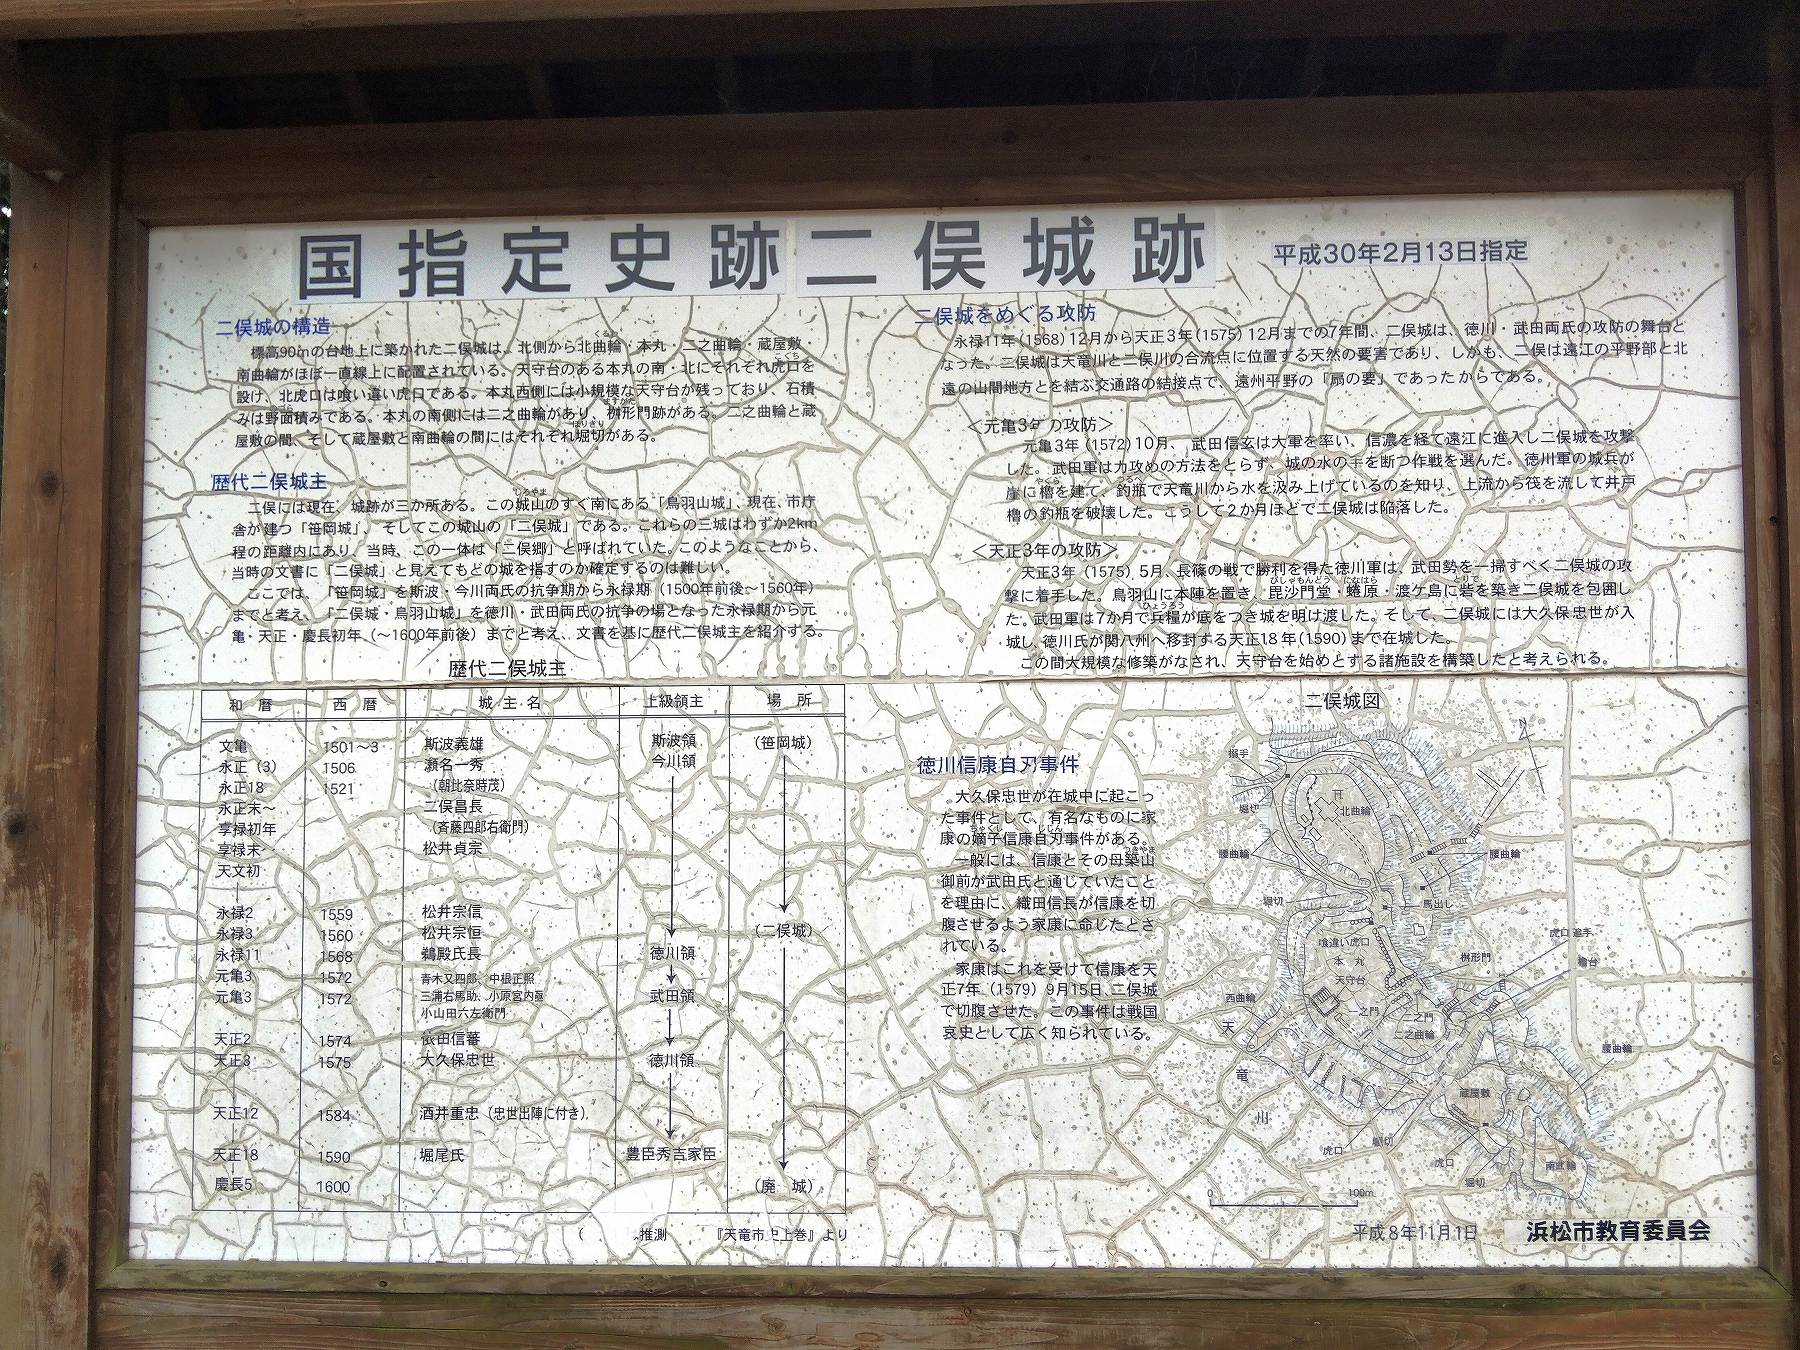 国指定史跡二俣城跡
平成30年2月13日指定
二俣城の構造
標高90mの台地上に築かれた二俣城は、北側から北曲輪・本丸・二之曲輪・蔵屋敷・
南曲輪がほぼ一直線上に配置されている。天守台のある本丸の南・北にそれぞれ虎口を
設け、北虎口は喰い違い虎口である。本丸西側には小規模な天守台が残っており、石積
みは野面積みである。本丸の南側には二之曲輪があり、桝形門跡がある。二之曲輪と蔵
屋敷の間、そして蔵屋敷と南曲輪の間にはそれぞれ堀切がある。
歴代二俣城主
二俣には現在、城跡が三か所ある。この城山のすぐ南にある「鳥羽山城」、現在、市庁
舎が建つ「笹岡城」、そしてこの城山の「二俣城」である。これらの三城はわずか2km
程の距離内にあり、当時、この一体は「二俣郷」と呼ばれていた。このようなことから、
当時の文書に「二俣城」と見えてもどの城を指すのか確定するのは難しい。
ここでは、「笹岡城」を斯波・今川両氏の抗争期から永禄期（1500年前後～1560年）
までと考え、「二俣城・鳥羽山城」を徳川・武田両氏の抗争の場となった永禄期から元
亀・天正・慶長初年（～1600年前後）までと考え、文書を基に歴代二俣城主を紹介する。
歴代二俣城主
和暦 西暦 城主名 上級領主 場所
文亀 1501～3 斯波義雄 斯波領 （笹岡城）
永正（3） 1506 瀬名一秀 今川領
永正18 1521 （朝比奈時茂）
永正末～ 二俣昌長
享禄初年 （斉藤四郎右衛門）
享禄末 松井貞宗
天文初
永禄2 1559 松井宗信
永禄3 1560 松井宗恒 （二俣城）
永禄11 1568 鵜殿氏長 徳川領
元亀3 1572 青木又四郎、中根正照
元亀3 1572 三浦右馬助、小原宮内丞 武田領
小山田六左衛門
天正2 1574 依田信蕃
天正3 1575 大久保忠世 徳川領
天正12 1584 酒井重忠（忠世出陣に付き）
天正18 1590 堀尾氏 豊臣秀吉家臣
慶長5 1600 （廃城）
（ 推測 『天竜市史上巻』より
二俣城をめぐる攻防
永禄11年（1568）12月から天正3年（1575）12月までの7年間、二俣城は、徳川・武田両氏の攻防の舞台と
なった。二俣城は天竜川と二俣川の合流点に位置する天然の要害であり、しかも、二俣は遠江の平野部と北
遠の山間地方とを結ぶ交通路の結接点で、遠州平野の「扇の要」であったからである。
＜元亀3年の攻防＞
元亀3年（1572）10月、武田信玄は大軍を率い、信濃を経て遠江に進入し二俣城を攻撃
した。武田軍は力攻めの方法をとらず、城の水の手を断つ作戦を選んだ。徳川軍の城兵が
崖に櫓を建て、釣瓶で天竜川から水を汲み上げているのを知り、上流から筏を流して井戸
櫓の釣瓶を破壊した。こうして2か月ほどで二俣城は陥落した。
＜天正3年の攻防＞
天正3年（1575）5月、長篠の戦で勝利を得た徳川軍は、武田勢を一掃すべく二俣城の攻
撃に着手した。鳥羽山に本陣を置き、毘沙門堂・蜷原・渡ケ島に砦を築き二俣城を包囲し
た。武田軍は7か月で兵糧が底をつき城を明け渡した。そして、二俣城には大久保忠世が入
城し、徳川氏が関八州へ移封する天正18年（1590）まで在城した。
この間大規模な修築がなされ、天守台を始めとする諸施設を構築したと考えられる。
徳川信康自刃事件
大久保忠世が在城中に起こっ
た事件として、有名なものに家
康の嫡子信康自刃事件がある。
一般には、信康とその母築山
御前が武田氏と通じていたこと
を理由に、織田信長が信康を切
腹させるよう家康に命じたとさ
れている。
家康はこれを受けて信康を天
正7年（1579）9月15日、二俣城
で切腹させた。この事件は戦国
哀史として広く知られている。
二俣城図
N
搦手
堀切
北曲輪
腰曲輪
腰曲輪
堀切
馬出し
虎口 追手
喰違い虎口
本丸
桝形門
櫓台
天守台
西曲輪
一之門
二之門
二之曲輪
天竜川
腰曲輪
蔵屋敷
虎口
堀切
虎口
堀切
南曲輪
0 100m
平成8年11月1日
浜松市教育委員会